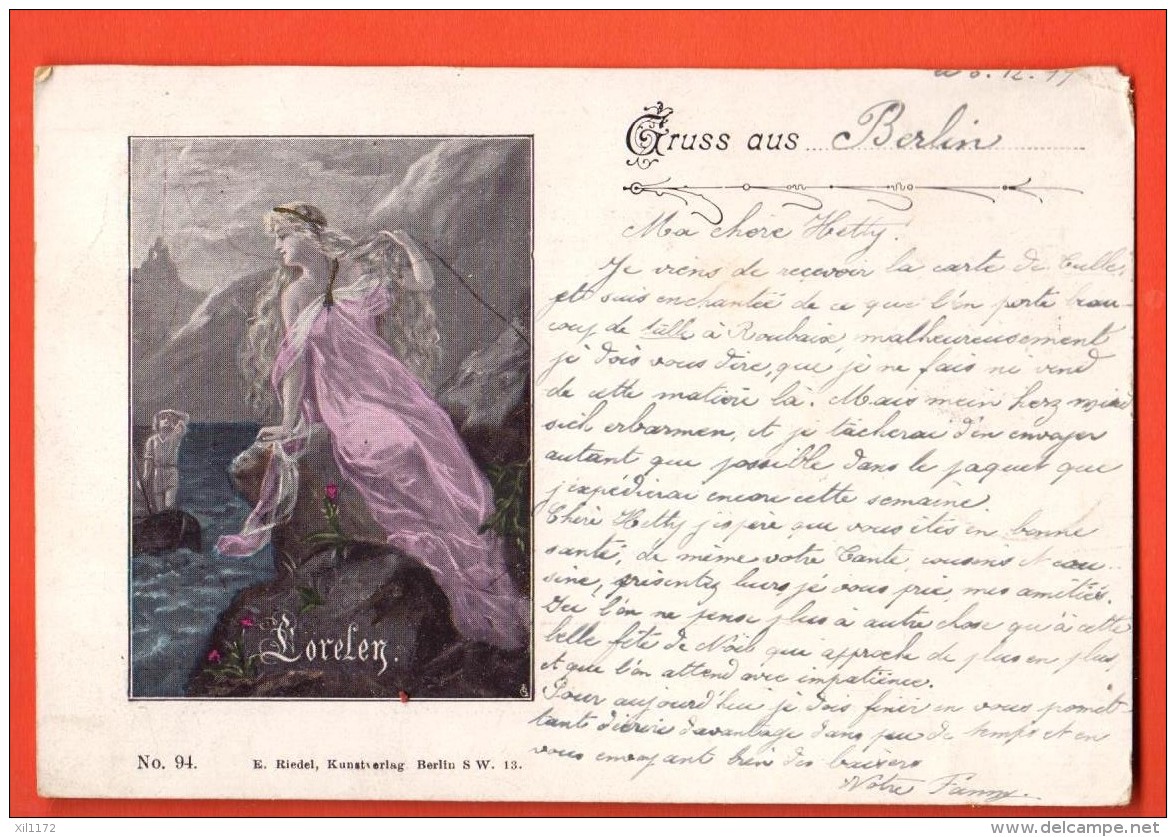 6. 12. 97
Gruss aus Berlin
Ma chère Hetty!
Je viens de recevoir la carte de Tulle,
et suis enchantée de ce que l'on porte beau-
coup de tulle à Roubaix, malheureusement
je dois vous dire, que je ne fais ni vend
de cette matière là. Mais mein herz
sich erbarmen, et je tâcherai d'en envoyer
autant que possible dans le paquet que
j'expédierai encore cette semaine.
Chère Hetty j'espère que vous êtes en bonne
santé, de même votre Tante, cousins et cou-
sine, présentez leurs, je vous prie, mes amitiés.
Ici l'on ne pense plus à autre chose qu'à cette
belle fête de Noël qui approche de plus en plus,
et que l'on attend avec impatience.
Pour aujourd'hui je dois finir en vous promet-
tant d'écrire davantage dans peu de temps et en
vous envoyant bien des baisers
Votre Fanny.
Loreley.
No. 94.
E. Riedel, Kunstverlag Berlin S W. 13.
xil1172
delcampe.net